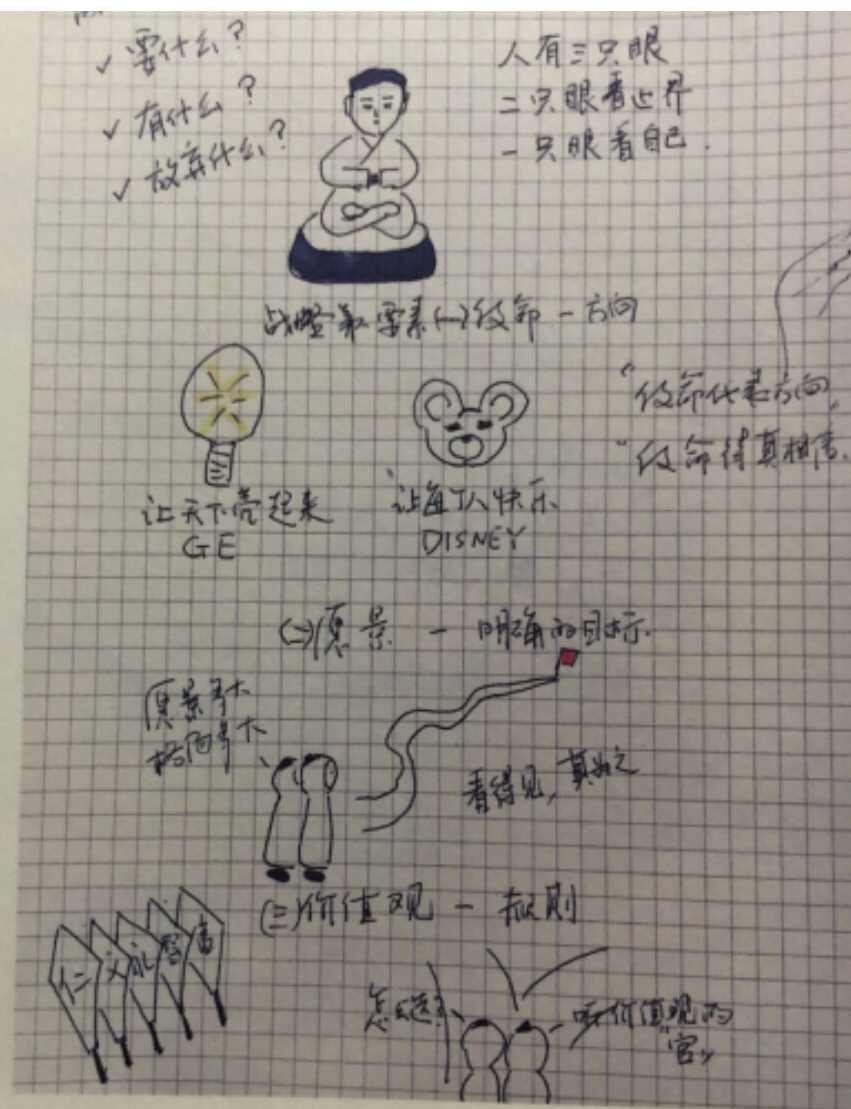 ✓ 要什么?
✓ 有什么?
✓ 放弃什么?
人有三只眼
二只眼看世界
一只眼看自己.
战略 要素(一)使命 - 方向
"使命代表方向,
"使命得真相信.
让天下亮起来
GE
让每个人快乐
DISNEY
(二)愿景 - 明确的目标.
愿景
格局
看得见,
(三)价值观 - 规则
仁
义
礼
智
信
怎么选?
听价值观的
"官"